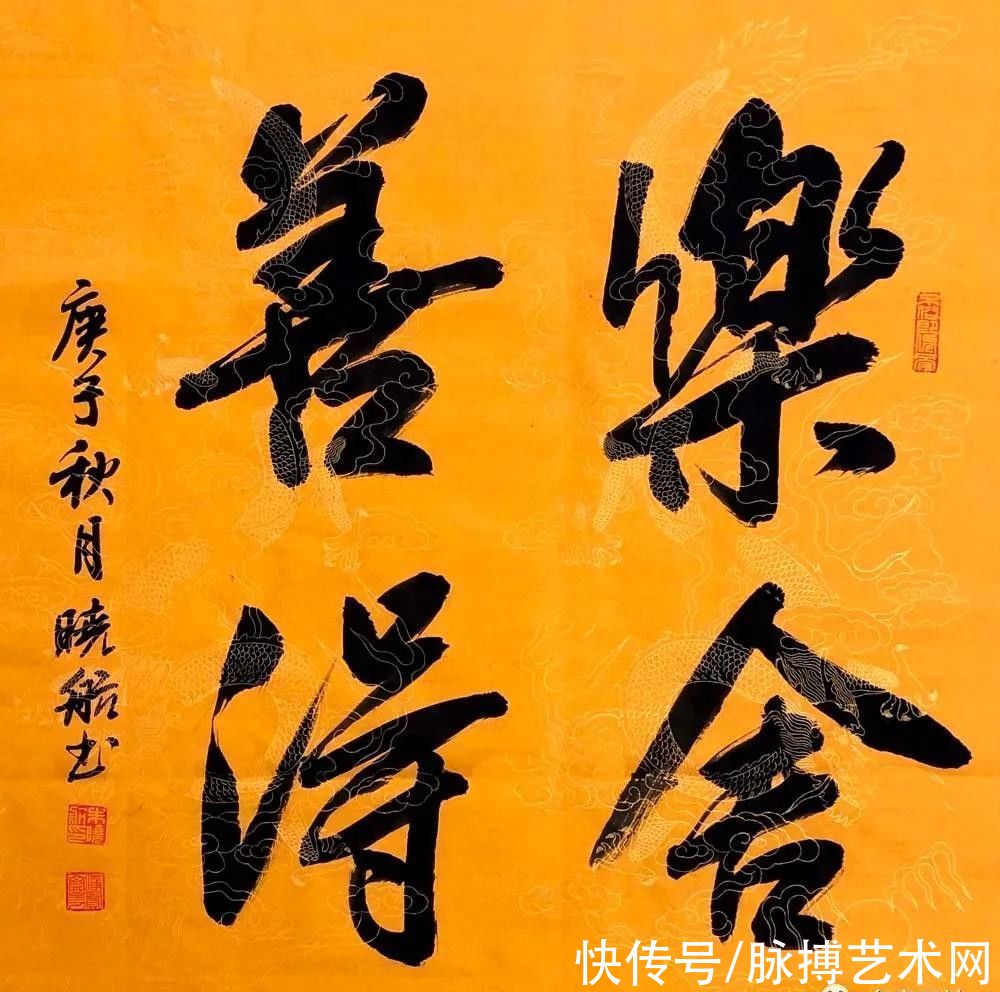 樂舍
善得
庚子秋月曉船书
快传号/脉搏艺术网